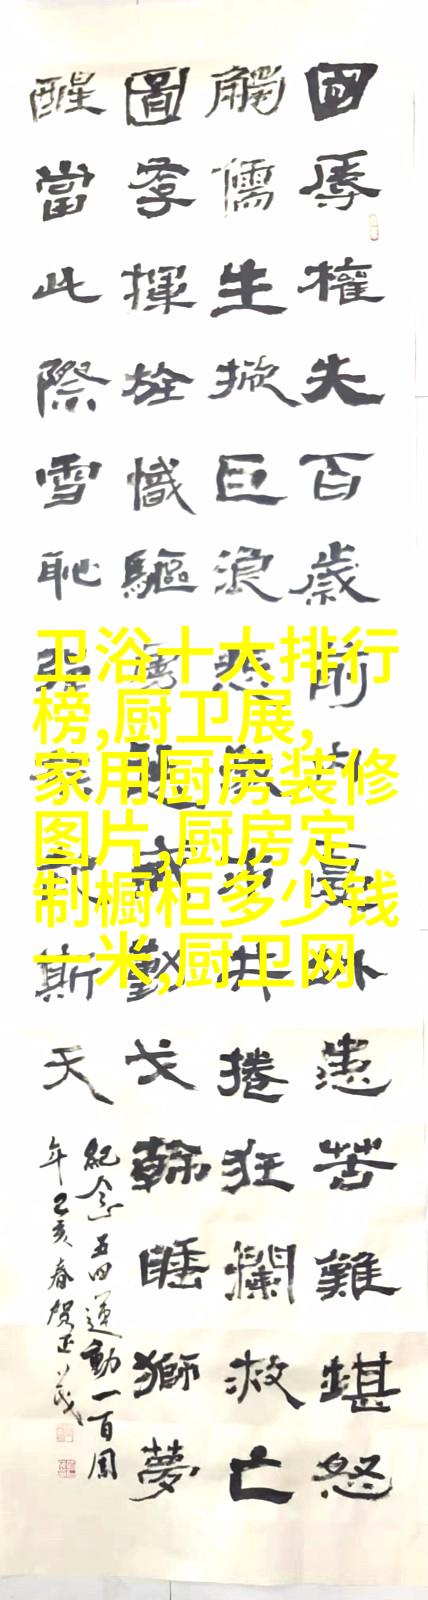 卫浴十大排行
榜,厨卫展,
家用厨房装修
图片,厨房定
制橱柜多少钱
一米,厨卫网
國辱權失百歲前憂外患苦難堪怒
觸儒生掀巨浪悲共捲狂瀾救亡
圖存揮旌幟驅戈睡獅夢
醒當此際雪恥強斯天
紀念五四運動一百周
年己亥春贺正